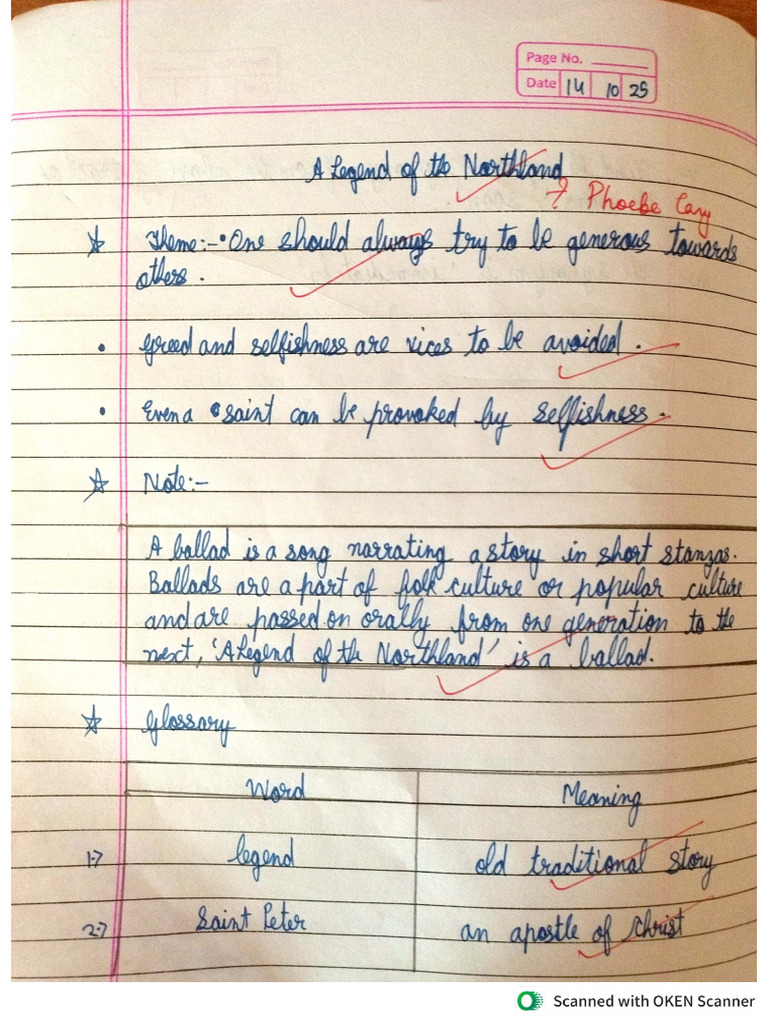 Page No.
Date 14 10 25
A Legend of the Northland
? Phoebe Cary
Theme:- • One should always try to be generous towards
others.
• Greed and selfishness are vices to be avoided.
• Even a saint can be provoked by selfishness.
Note:-
A ballad is a song narrating a story in short stanzas.
Ballads are a part of folk culture or popular culture
and are passed on orally from one generation to the
next, 'A Legend of the Northland' is a ballad.
Glossary
Word Meaning
1.→ legend old traditional story
2.→ Saint Peter an apostle of Christ
Scanned with OKEN Scanner